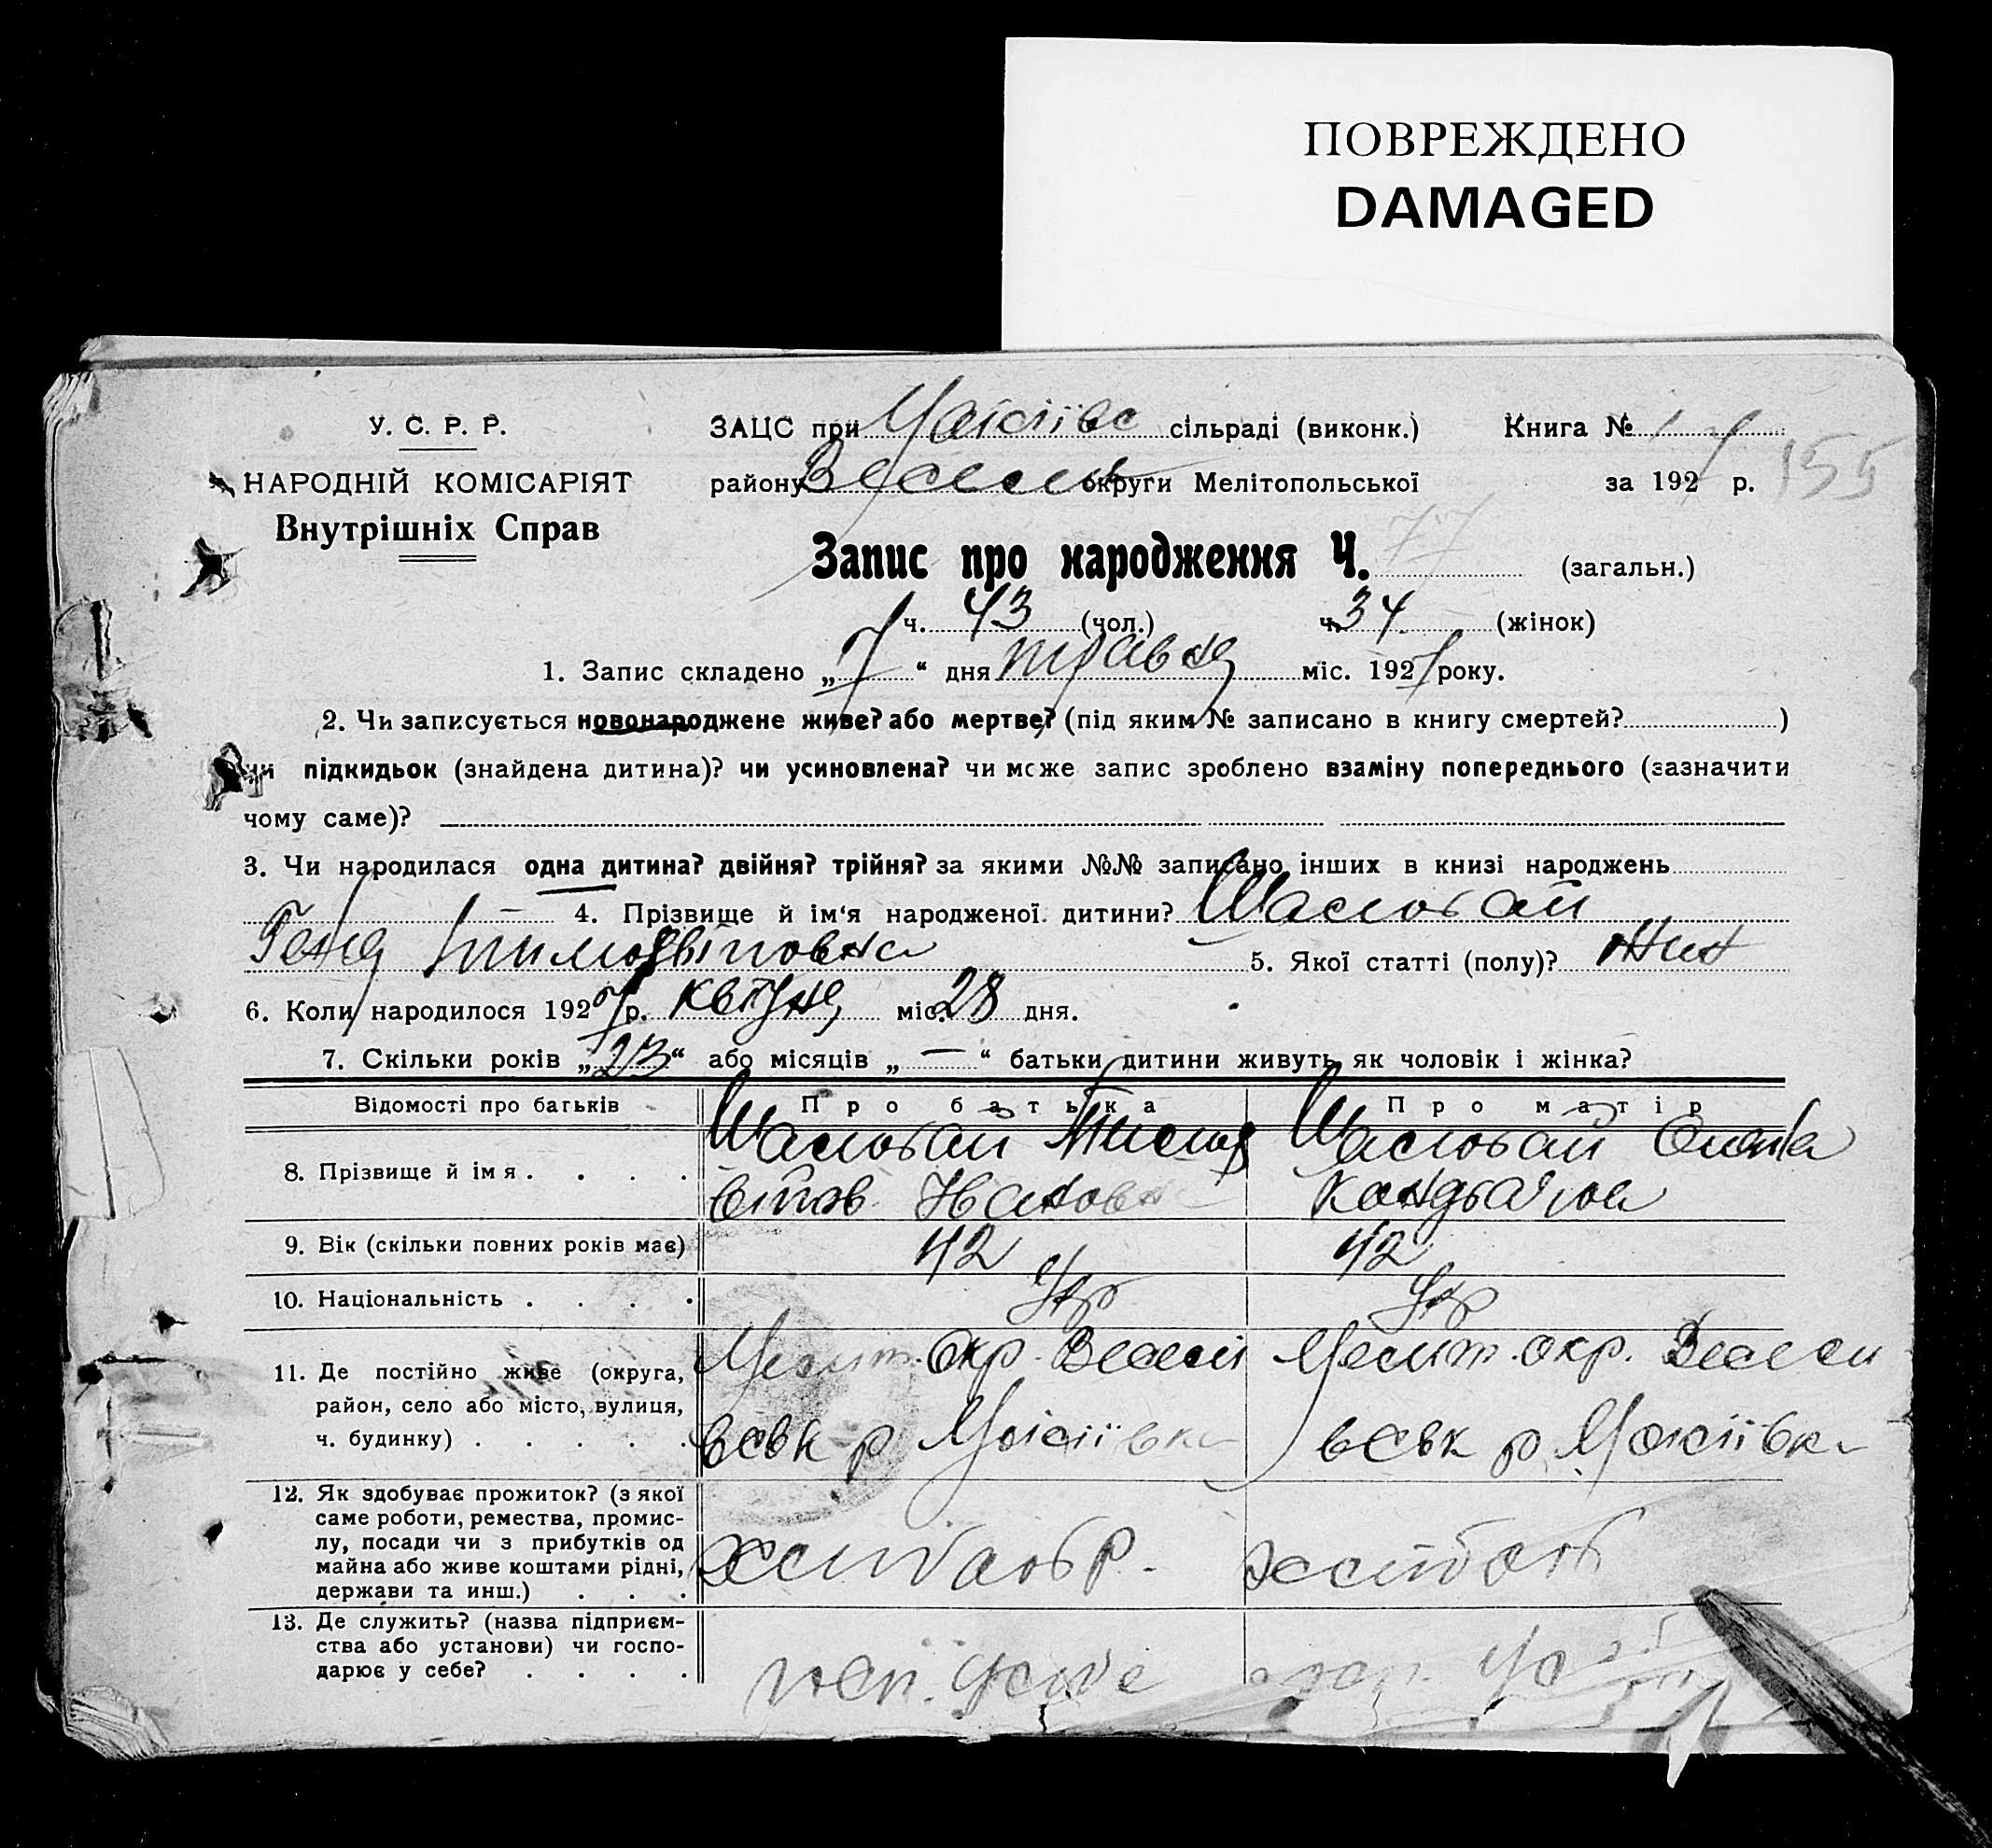 ПОВРЕЖДЕНО
DAMAGED
У. С. Р. Р.
НАРОДНІЙ КОМІСАРІЯТ
Внутрішніх Справ
ЗАЦС при сільраді (виконк.) Книга №
району округи Мелітопольської за 1927 р. 155
Запис про народження Ч. 77 (загальн.)
ч. 43 (чол.) ч. 34 (жінок)
1. Запис складено „7“ дня травня міс. 1927 року.
2. Чи записується новонароджене живе? або мертве? (під яким № записано в книгу смертей? )
чи підкидьок (знайдена дитина)? чи усиновлена? чи може запис зроблено взаміну попереднього (зазначити
чому саме)?
3. Чи народилася одна дитина? двійня? трійня? за якими №№ записано інших в книзі народжень
— 4. Прізвище й ім‘я народженої дитини?
5. Якої статті (полу)? жін
6. Коли народилося 1927 р. квітня міс. 28 дня.
7. Скільки років „23“ або місяців „—“ батьки дитини живуть як чоловік і жінка?
Відомості про батьків Про батька Про матір
8. Прізвище й імя . . . .
9. Вік (скільки повних років має) 42 42
10. Національність . . . . Укр Укр
11. Де постійно живе (округа, Мелит. окр. Мелит. окр.
район, село або місто, вулиця,
ч. будинку) . . . . . р Моісіївка р Моісіївка
12. Як здобуває прожиток? (з якої
саме роботи, ремества, промис-
лу, посади чи з прибутків од
майна або живе коштами рідні,
держави та инш.) . . . хлібороб
13. Де служить? (назва підприєм-
ства або установи) чи госпо-
дарює у себе? . . . .